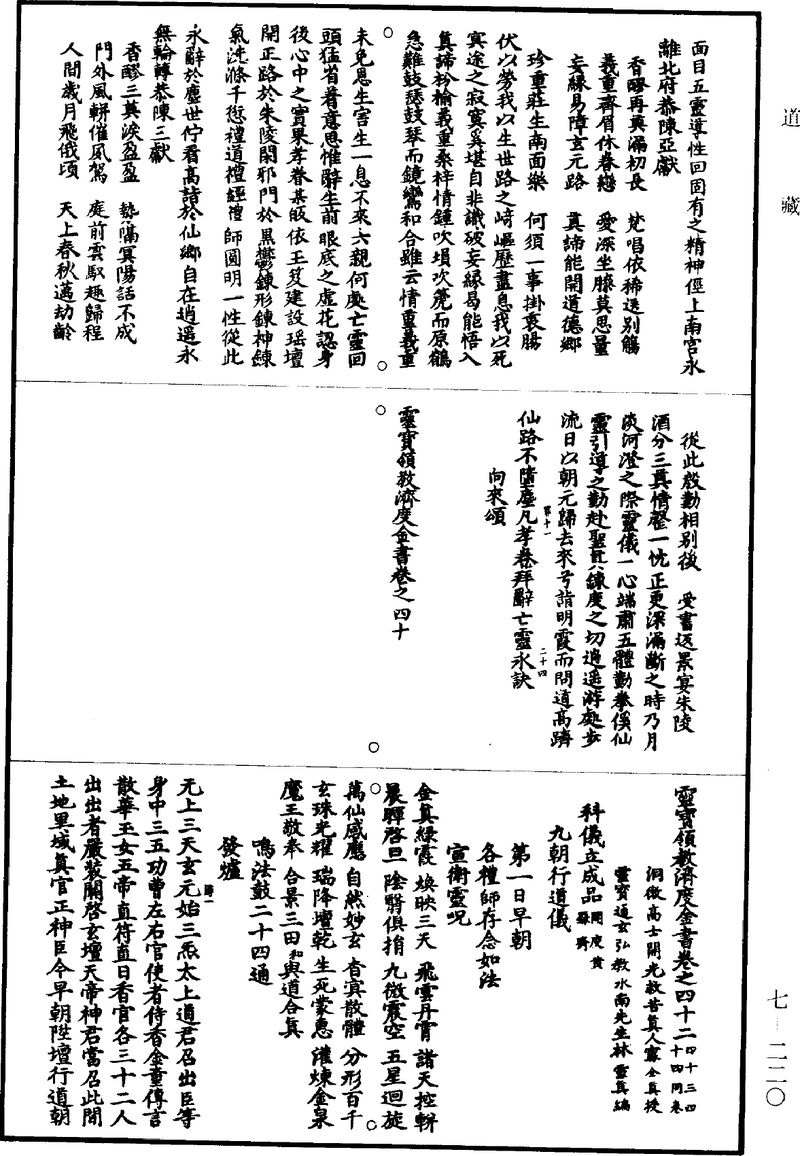 道藏
七—二二〇
面目五靈導性回固有之精神徑上南宮永
離北府恭陳亞獻
香醪再奠漏初長　梵唱依稀送別觴
義重齊眉休眷戀　愛深坐膝莫思量
妄緣易障玄元路　真諦能開道德鄉
珍重莊生南面樂　何須一事掛衷腸
伏以勞我以生世路之﨑嶇歷盡息我以死
冥途之寂寞奚堪自非識破妄緣曷能悟入
真諦枌榆義重桑梓情鍾吹塤吹箎而原鶺
急難鼓瑟鼓琴而鏡鸞和合雖云情重義重
未免恩生害生一息不來六親何處亡靈回
頭猛省着意思惟辭生前眼底之虛花認身
後心中之實果孝眷某皈依王笈建設瑤壇
開正路於朱陵閉邪門於黑鬱鍊形鍊神鍊
氣洗滌千愆禮道禮經禮師圓明一性從此
永辭於塵世佇看高詣於仙鄉自在逍遥永
無輪轉恭陳三獻
香醪三奠淚盈盈　勢隔冥陽話不成
門外風輧催鳳駕　庭前雲馭趣歸程
人間歲月飛俄頃　天上春秋邁劫齡
從此殷勤相別後　受書返景宴朱陵
酒分三奠情歷一忱正更深漏斷之時乃月
淡河澄之際靈儀一心端肅五體勤拳俟仙
靈引導之勤赴聖真鍊度之切逍遥游處步
流日以朝元歸去來兮詣明霞而問道高躋
仙路不墮塵凡孝眷拜辭亡靈永訣
第十一　二十四
向來頌
靈寶領教濟度金書卷之四十
靈寶領教濟度金書卷之四十二　四十三四十四同卷
洞微高士開光救苦真人甯全真授
靈寶通玄弘教水南先生林靈真編
科儀立成品　開度黃籙齋
九朝行道儀
第一日早朝
各種師存念如法
宣衛靈呪
金真綠霞　煥映三天　飛雲丹霄　諸天控輧
晨暉啓旦　陰翳俱捐　九微震空　五星迴旋
萬仙感應　自然妙玄　杳㝠散體　分形百千
玄珠光耀　瑞降壇乾　生死蒙惠　灌煉金泉
魔王敬奉　合景三田　和　與道合真
鳴法鼓二十四通
發爐
无上三天玄元始三炁太上道君召出臣等
身中三五功曹左右官使者侍香金童傳言
散華玉女五帝直符直日香官各三十二人
出出者嚴裝關啓玄壇天帝神君當召此間
土地里域真官正神臣今早朝陞壇行道朝